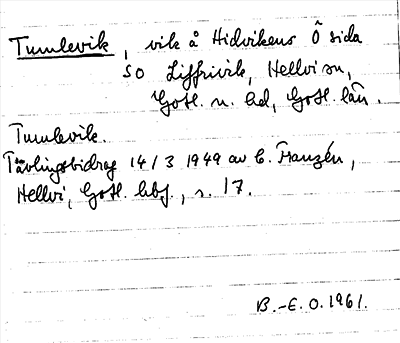 Tumlevik, vik å Hidvikens Ö sida
SO Liffrivik, Hellvi sn,
Gotl. n. hd, Gotl. län.
Tumlevik.
Tävlingsbidrag 14/3 1949 av C. Franzén,
Hellvi, Gotl. hbf., s. 17.
B.-E. O. 1961.